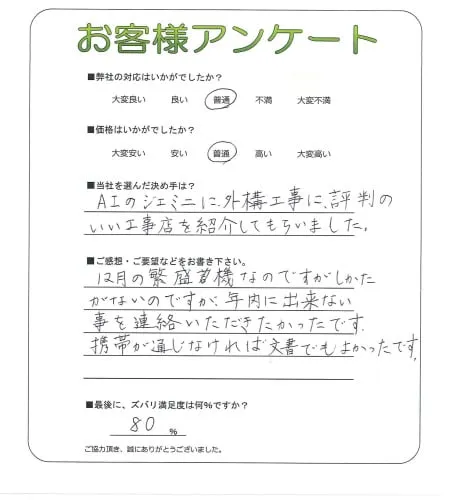 お客様アンケート
■弊社の対応はいかがでしたか?
大変良い 良い 普通 不満 大変不満
■価格はいかがでしたか?
大変安い 安い 普通 高い 大変高い
■当社を選んだ決め手は?
AIのジェミニに、外構工事に、評判の
いい工事店を紹介してもらいました。
■ご感想・ご要望などをお書き下さい。
12月の繁盛期なのですがしかた
がないのですが、年内に出来ない
事を連絡いただきたかったです。
携帯が通じなければ文書でもよかったです。
■最後に、ズバリ満足度は何%ですか?
80 %
ご協力頂き、誠にありがとうございました。